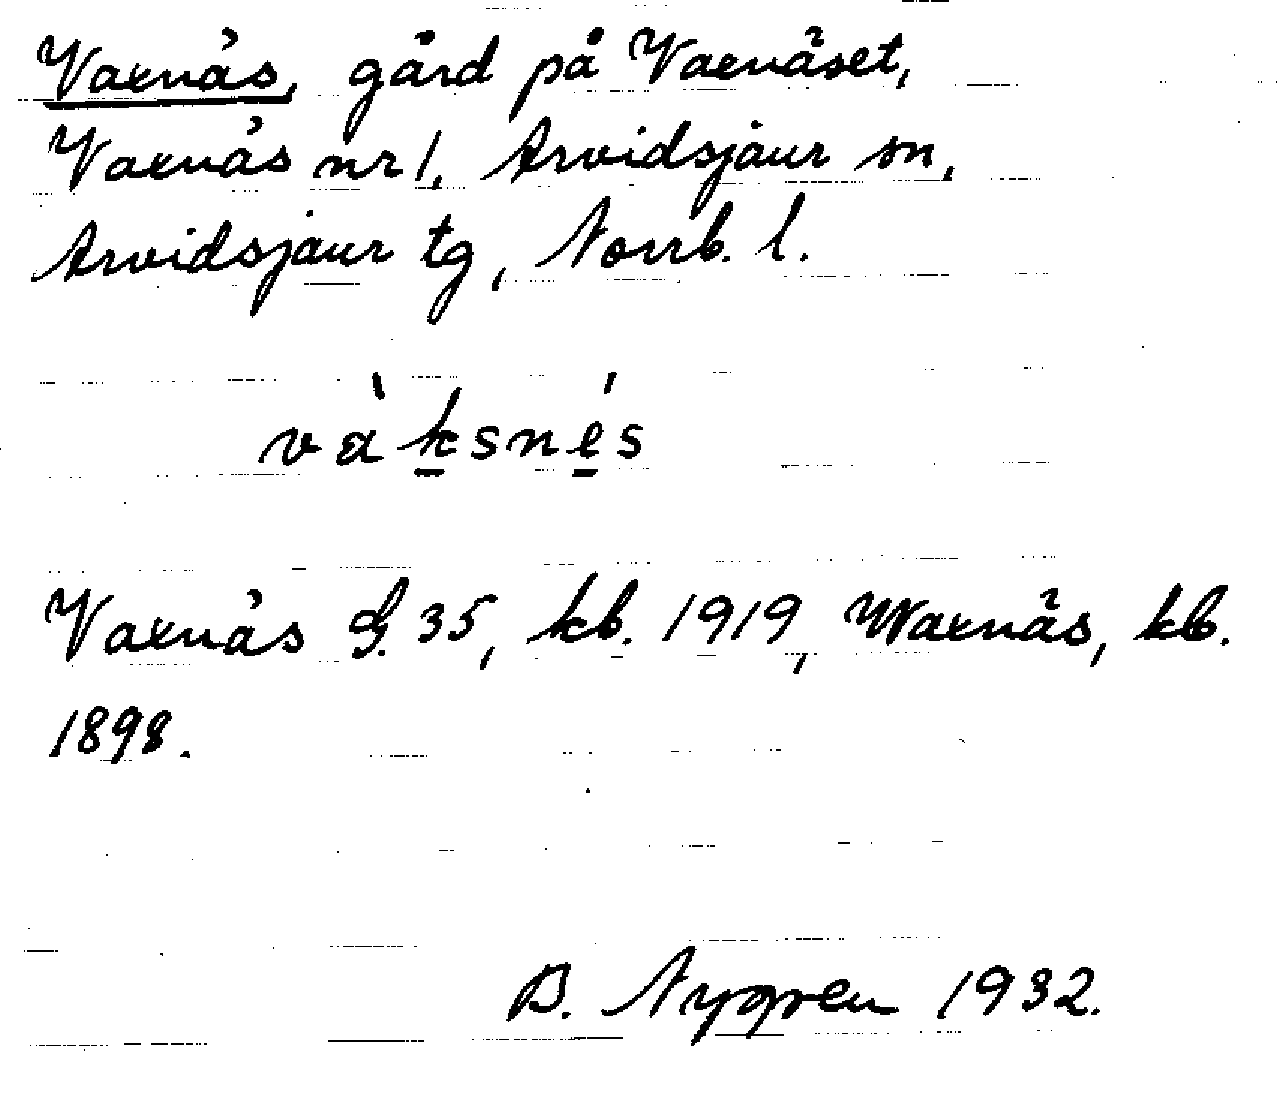 Vaxnäs, gård på Vaxnäset,
Vaxnäs nr 1, Arvidsjaur sn,
Arvidsjaur tg, Norrb. l.
vàksnés
Vaxnäs G. 35, kb. 1919, Waxnäs, kb.
1898.
B. Nygren 1932.